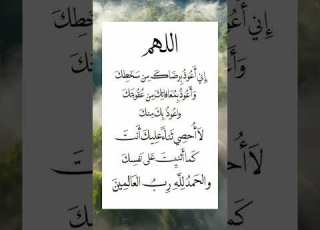 اللهم
إني أعوذ برضاك من سخطك
وأعوذ بمعافاتك من عقوبتك
وأعوذ بك منك
لا أحصي ثناء عليك أنت
كما أثنيت على نفسك
والحمد لله رب العالمين